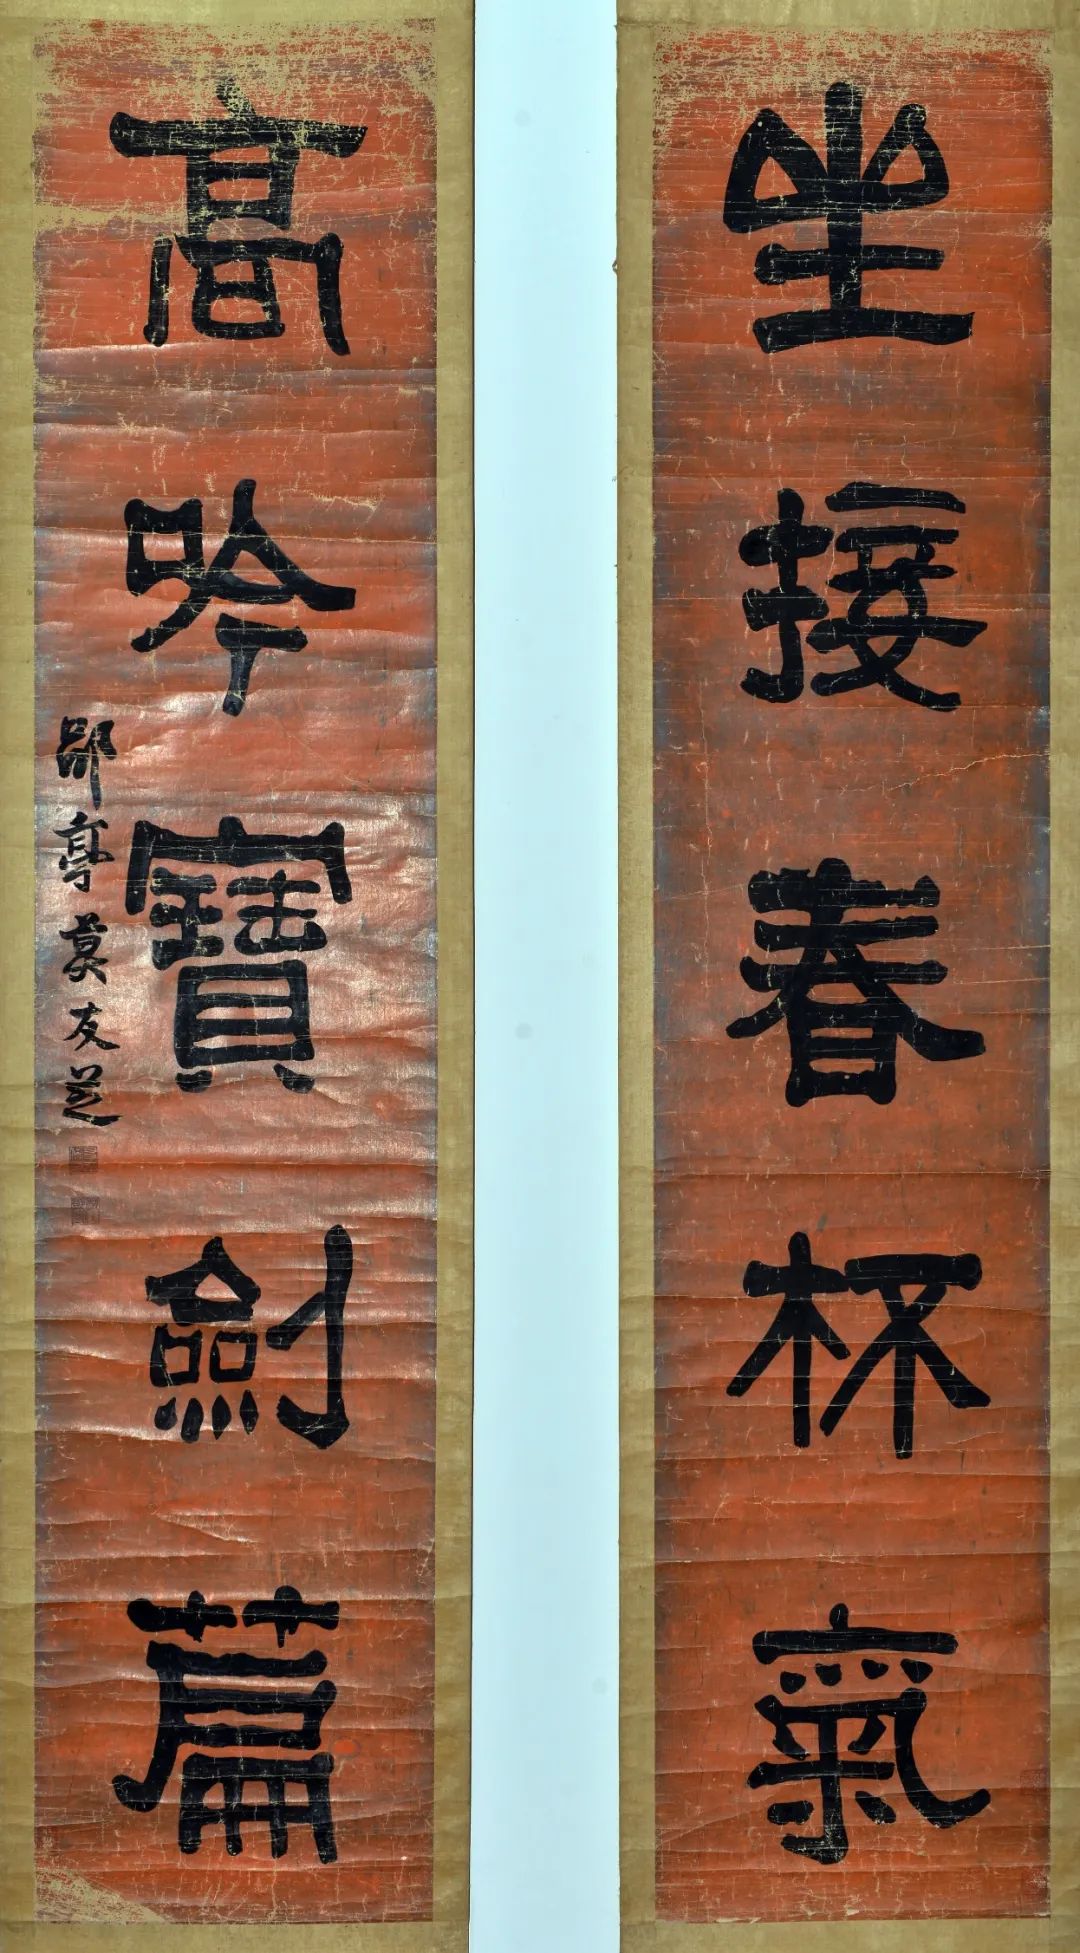 坐接春杯氣
高吟寶劒篇
郘亭莫友芝